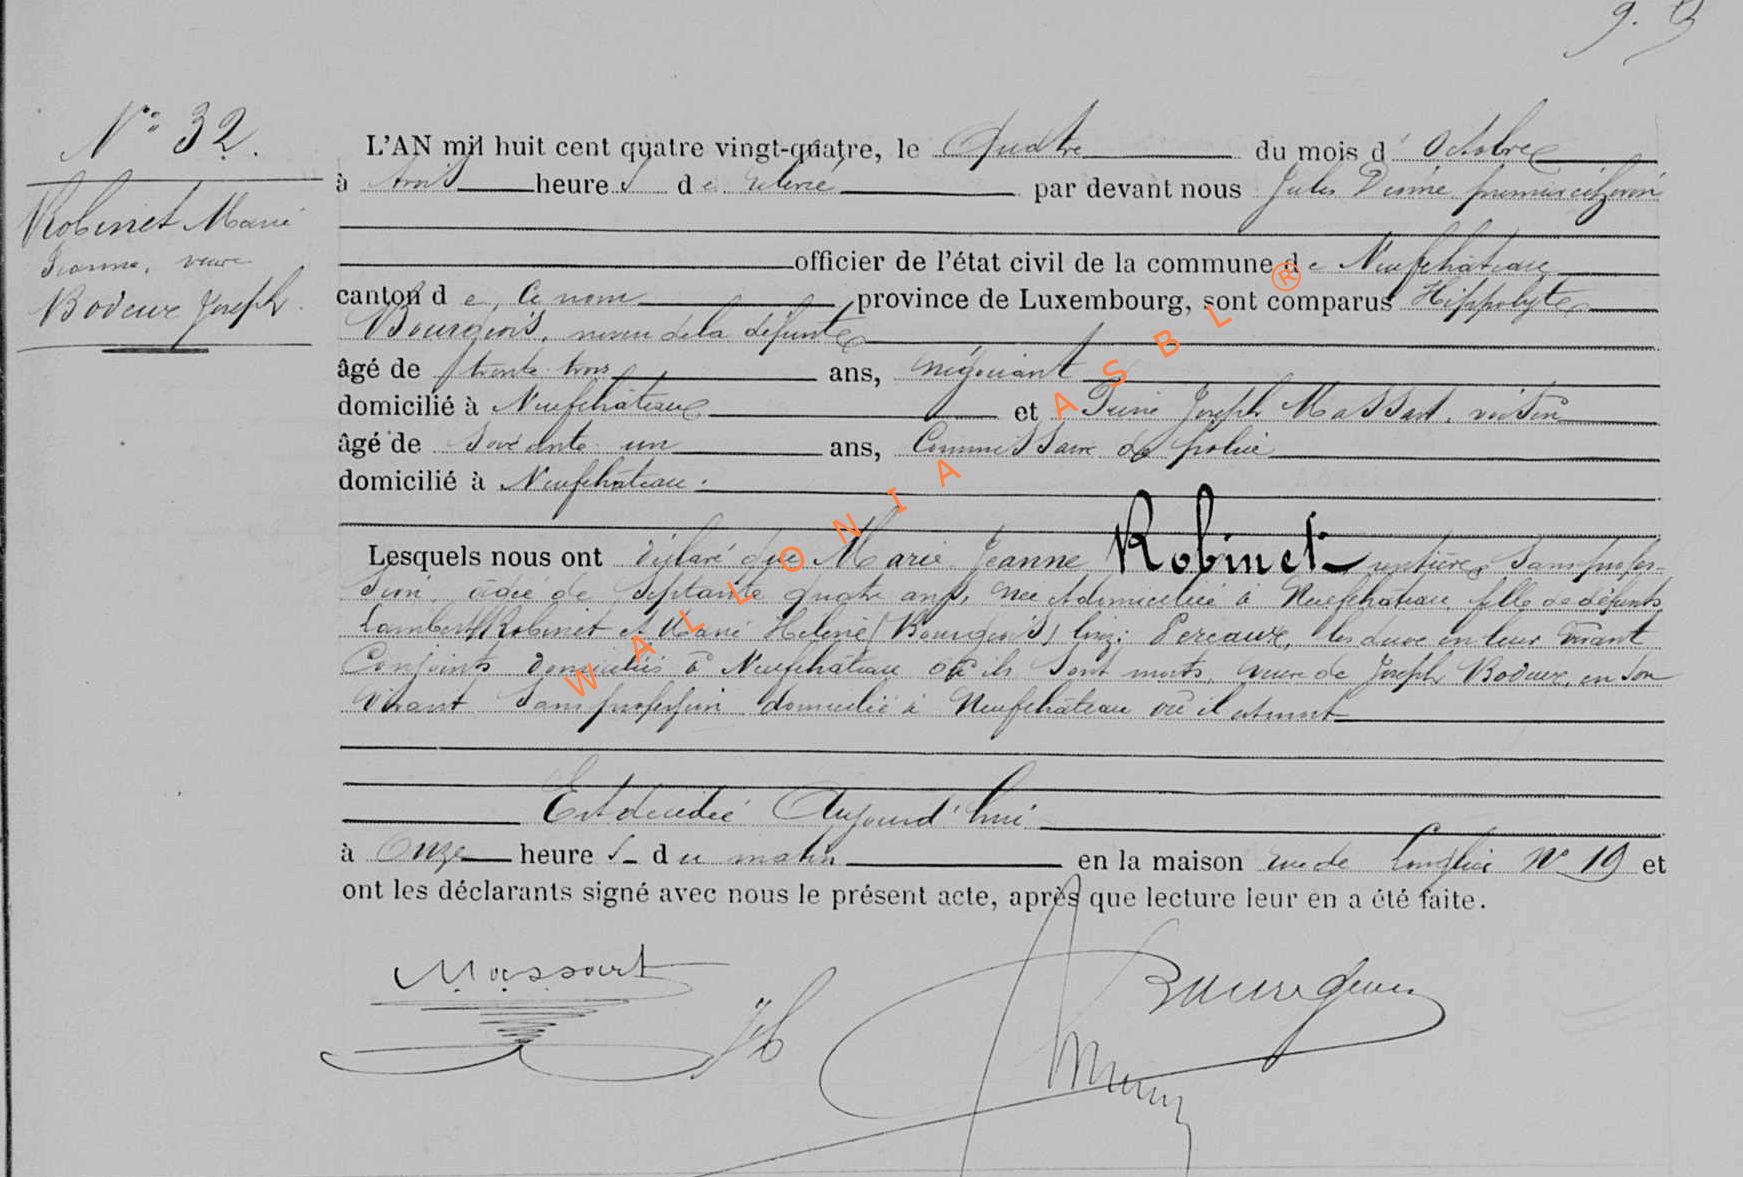 N° 32.
Robinet Marie
Jeanne, veuve
Bodeux Joseph.
L'AN mil huit cent quatre vingt-quatre, le Quatre du mois d' Octobre
à trois heure s de relevée par devant nous Jules premier échevin
officier de l'état civil de la commune de Neufchâteau
canton de ce nom province de Luxembourg, sont comparus Hippolyte
Bourgeois, neveu de la défunte
âgé de trente trois ans, négociant
domicilié à Neufchâteau et Joseph Massart, voisin
âgé de soixante un ans, Commissaire de police
domicilié à Neufchâteau.
Lesquels nous ont déclaré que Marie Jeanne Robinet rentière, sans profes-
sion, âgée de septante quatre ans, née et domiciliée à Neufchâteau fille de défunts
Lambert Robinet et Marie Helene (Bourgeois) Pereaux, les deux en leur vivant
Conjoints domiciliés à Neufchâteau où ils sont morts, veuve de Joseph Bodeux, en son
vivant sans profession domicilié à Neufchâteau où il est mort
Est décédée Aujourd'hui
à Onze heure s du matin en la maison rue de Longlier N° 19 et
ont les déclarants signé avec nous le présent acte, après que lecture leur en a été faite.
Massart
Bourgeois
WALLONIA ASBL ®